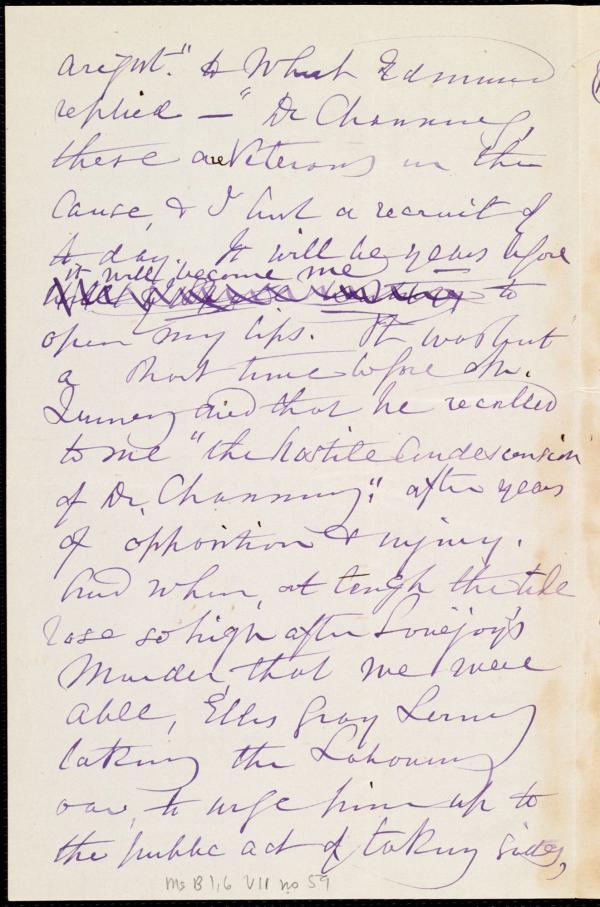 aright." To which Edmund
replied — "Dr Channing,
these are Veterans in the
Cause, & I but a recruit of
to day. It will be years before
it will become me to
open my lips. It was but
a short time before Mr.
Quincy died that he recalled
to me "the hostile Condescension
of Dr. Channing". after years
of opposition & injury.
And when, at length the tide
rose so high after Lovejoy's
Murder, that we were
able, Ellis Gray Loring
taking the Labouring
oar, to urge him up to
the public act of taking sides,
Ms B 1.6 VII no 59